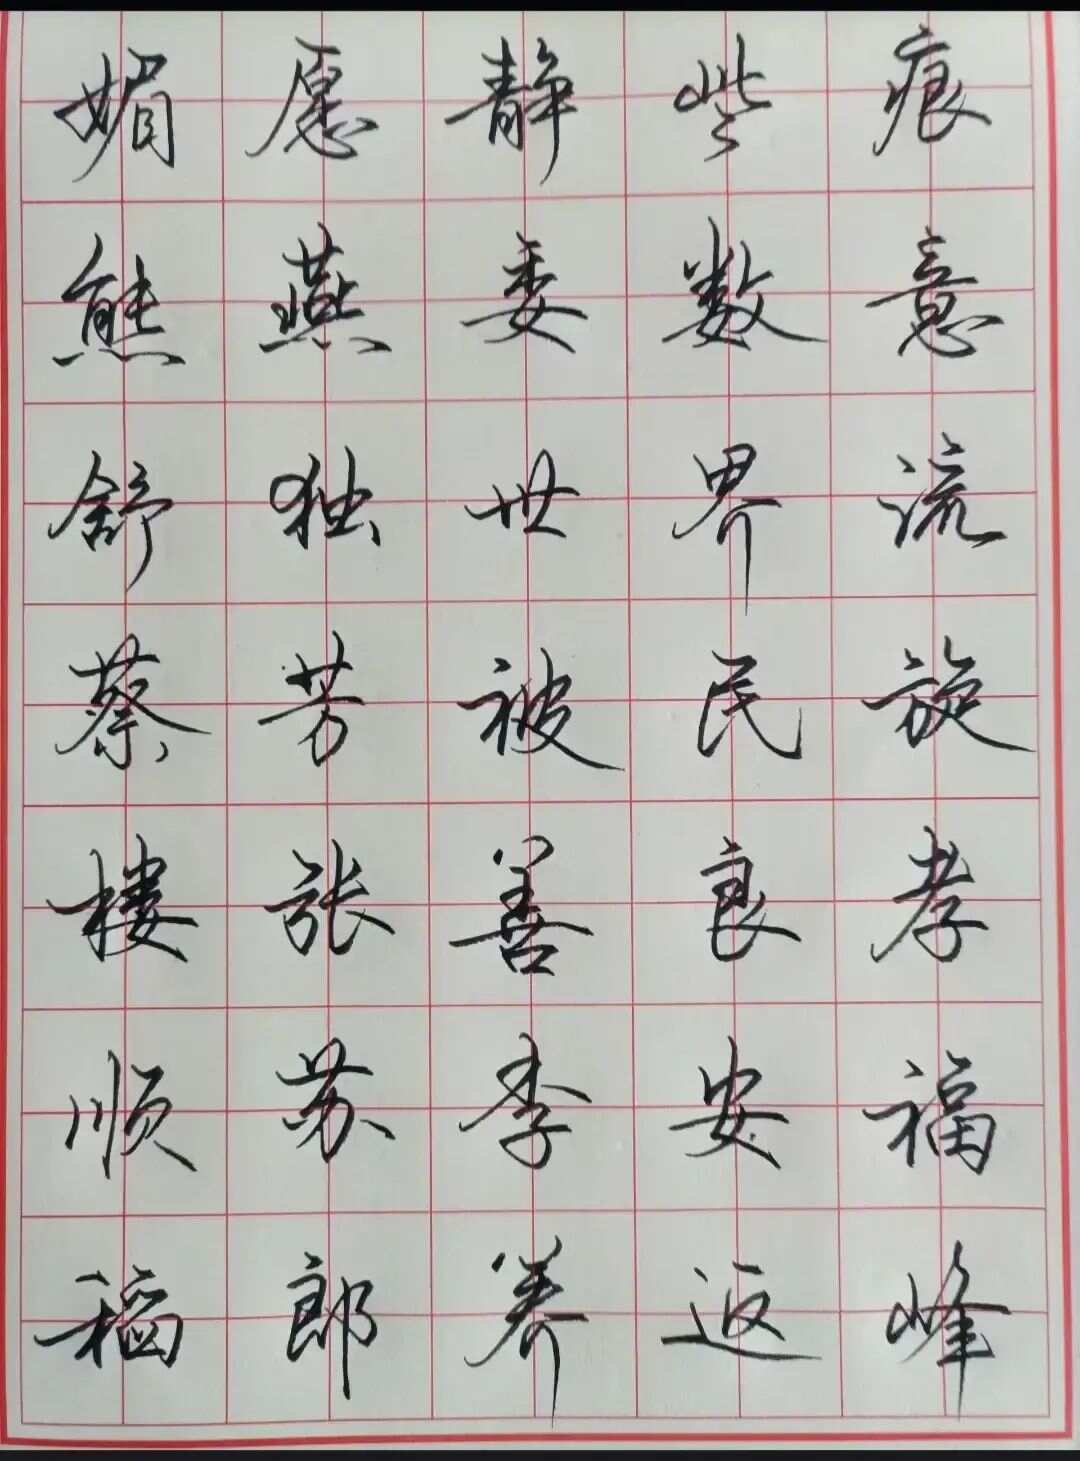 媚愿静些痕
熊燕委数意
舒独世界流
蔡芳被民旋
楼张善良孝
顺苏李安福
稻郎养返峰